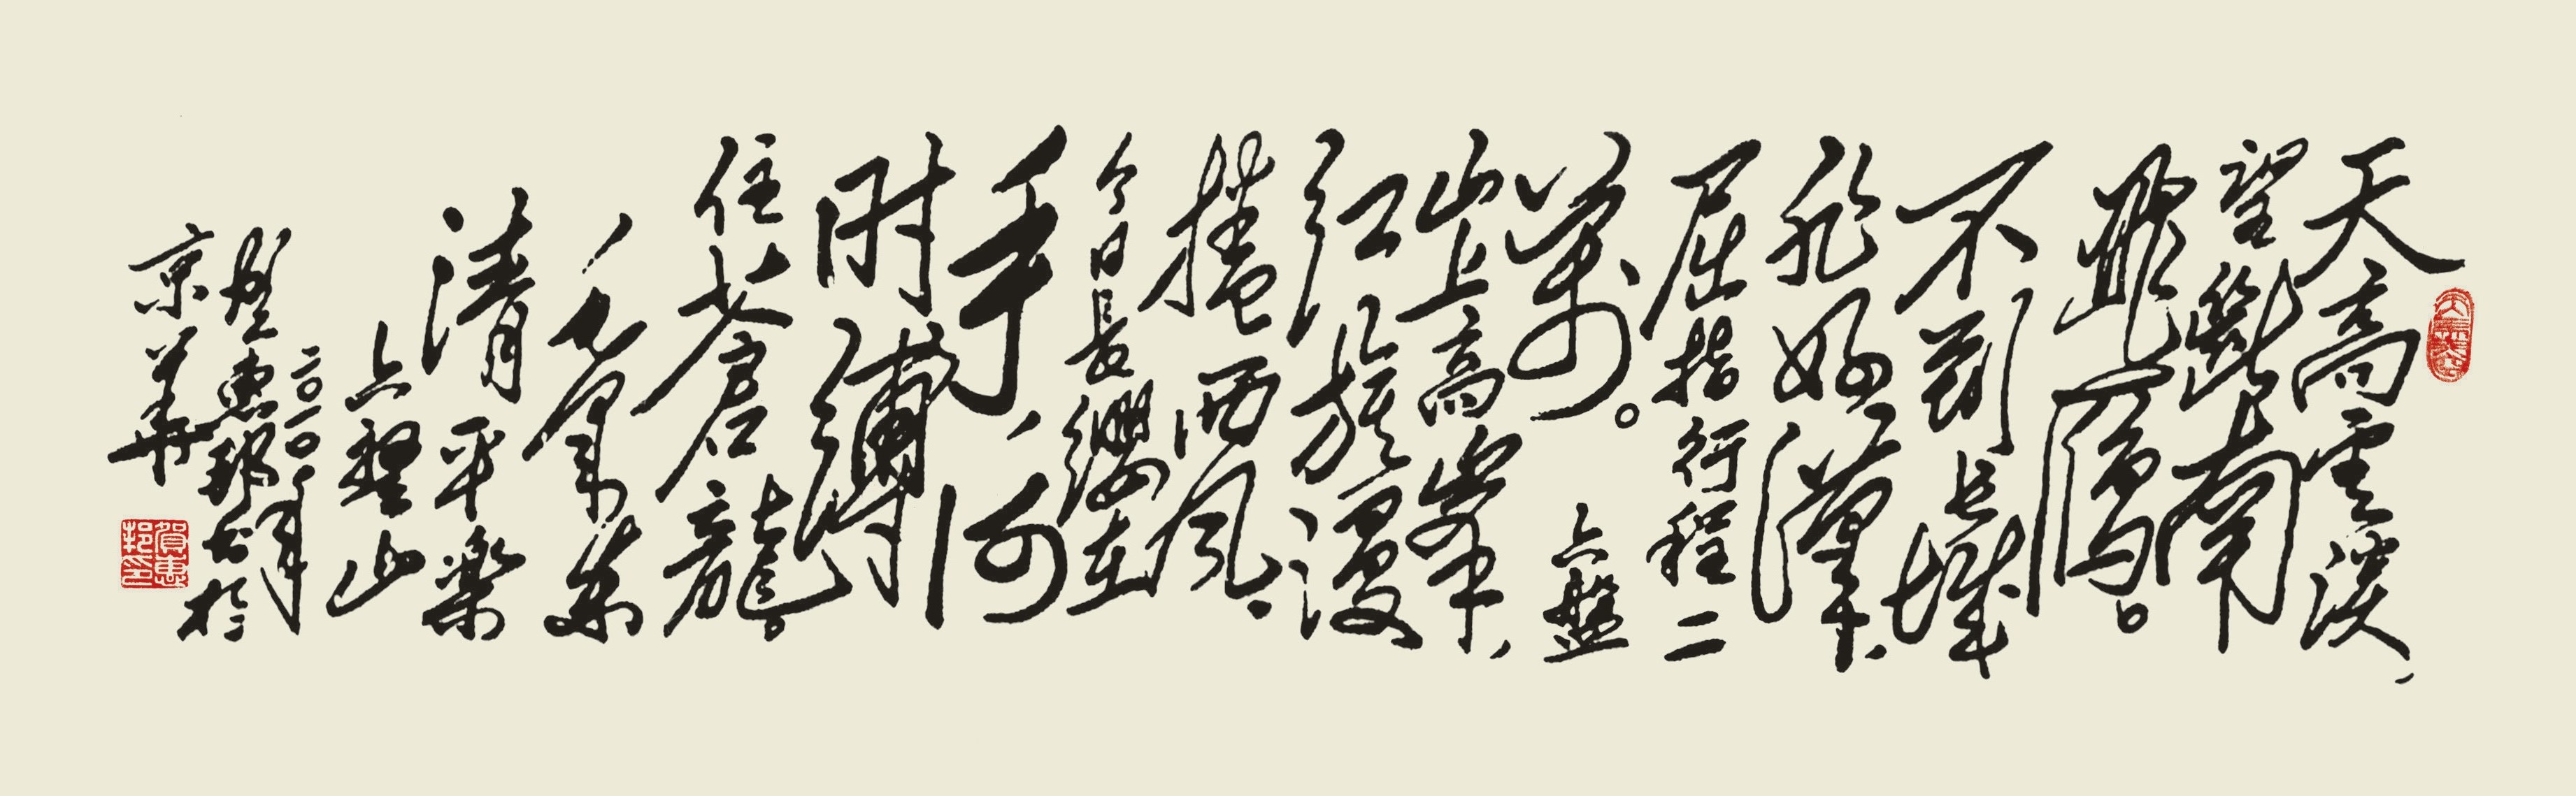 天高雲淡、
望斷南
飛雁。
不到长城
非好漢、
屈指行程二
萬。六盤
山上高峯、
红旗漫
捲西風、
今日長纓在
手、何
时縛
住蒼龍。
毛澤東
清平樂
六盤山
二〇一〇
賀惠邦书於
京華
賀惠邦印